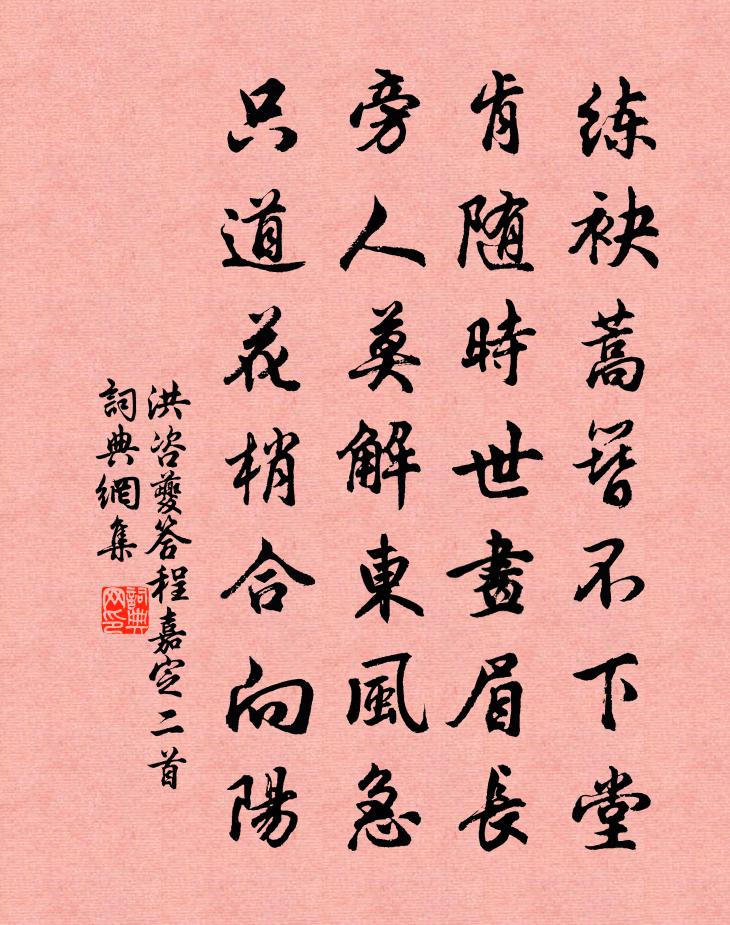 练袂蒿簪不下堂
肯随時世畫眉長
旁人莫解東風急
只道花梢合向陽
洪咨夔答程嘉定二首
詞典網集
詞典网印